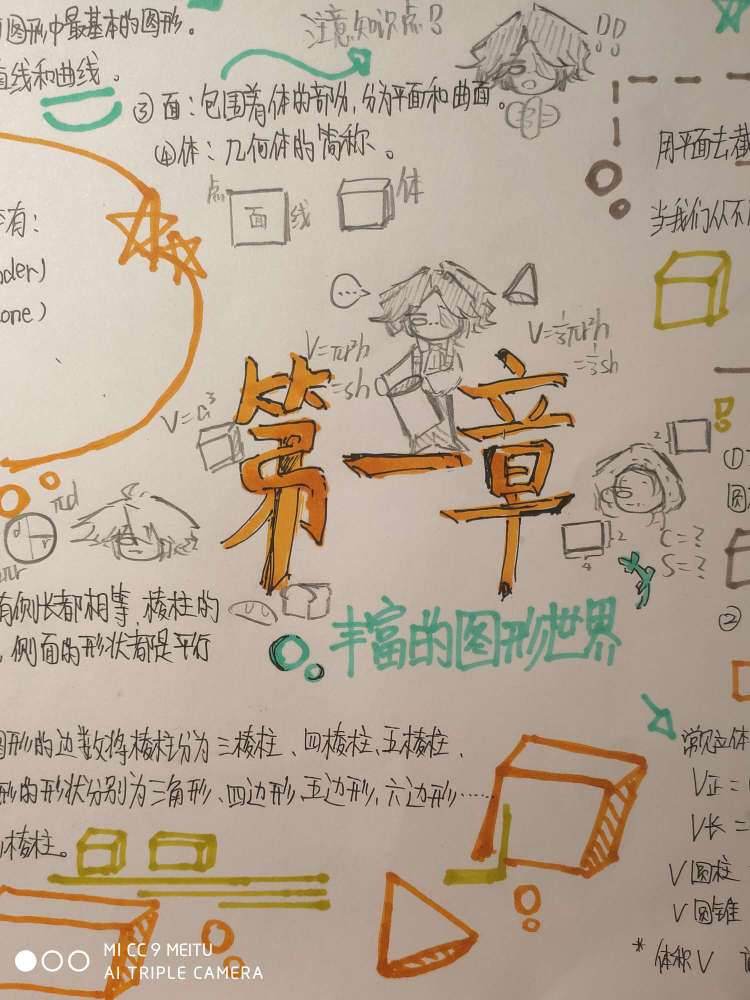 图形中最基本的图形。
直线和曲线。
注意知识点!
③面:包围着体的部份,分为平面和曲面。
④体:几何体的简称。
点
面
线
体
用平面去截
当我们从不
有:
der)
one)
...
V=πr²h
=sh
V=⅓πr²h
=⅓sh
V=a³
第一章
丰富的图形世界
πd
d
r
πr
2
2
4
C=?
S=?
①
圆
②
有侧长都相等,棱柱的
,侧面的形状都是平行
图形的边数将棱柱分为三棱柱、四棱柱、五棱柱、
形的形状分别为三角形、四边形、五边形、六边形……
棱柱。
常见立体
V正=
V长=
V圆柱
V圆锥
*体积V
MI CC 9 MEITU
AI TRIPLE CAMERA